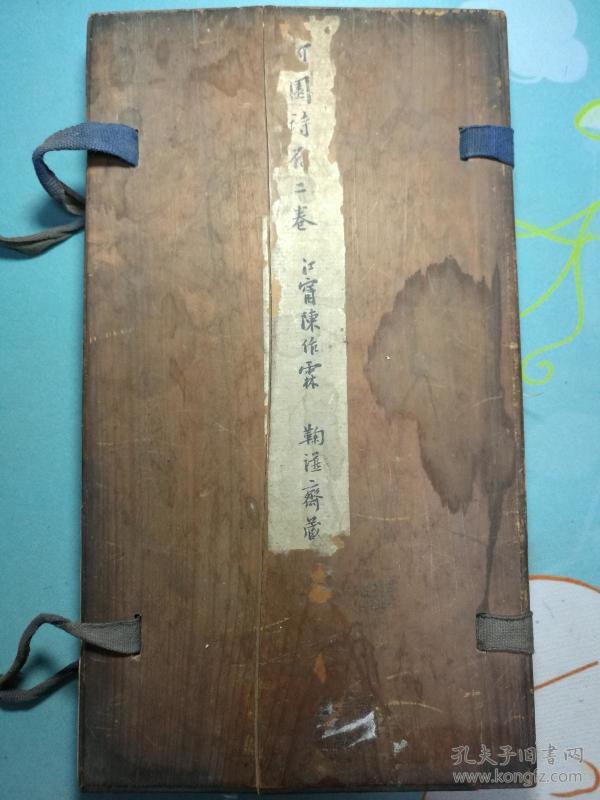 可園詩存二卷 江甯陳作霖 鞠諶齋藏
孔夫子旧書网
www.kongfz.com